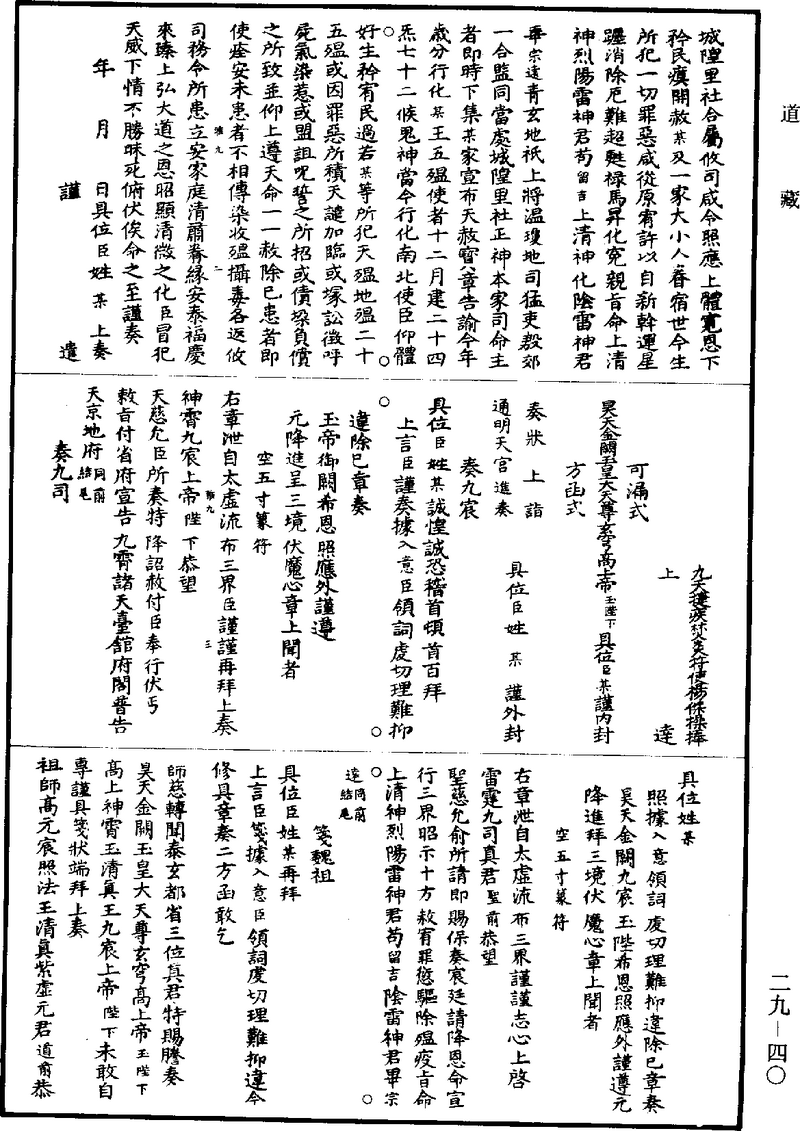 道藏
城隍里社合屬攸司咸令照應上體寬恩下
矜民瘼開赦某及一家大小人眷宿世今生
所犯一切罪惡咸從原宥許以自新斡運星
躔消除厄難超甦禄馬昇化寃親旨命上清
神烈陽雷神君苟留吉上清神化陰雷神君
畢宗遠青玄地祇上將溫瓊地司猛吏殷郊
一合監同當處城隍里社正神本家司命主
者即時下集某家宣布天赦寳章告諭今年
歲分行化某王五瘟使者十二月建二十四
炁七十二候鬼神當令行化南北使臣仰體
好生矜宥民過若某等所犯天瘟地瘟二十
五瘟或因罪惡所積天譴加臨或塚訟徵呼
屍氣染惹或盟詛呪誓之所招或債垜負償
之所致並仰上遵天命一一赦除已患者即
使痊安未患者不相傳染收瘟攝毒各返攸
司務令所患立安家庭清肅眷緣安泰福慶
來臻上弘大道之恩昭顯清微之化臣冒犯
天威下情不勝昧死俯伏俟命之至謹奏
年 月 日具位臣姓 某 上奏
謹 遣
九天捷疾焚炎符使楊傑操捧
上 達
可漏式
昊天金闕玉皇大天尊玄穹高上帝玉陛下具位臣某謹內封
方函式
奏狀上詣 具位臣姓 某 謹外封
通明天官進奏
奏九宸
具位臣姓某誠惶誠恐稽首頓首百拜
上言臣謹奏據入意臣領詞虔切理難抑
違除已章奏
玉帝御闕希恩照應外謹遵
元降進呈三境伏魔心章上聞者
空五寸篆符
右章泄自太虛流布三界臣謹謹再拜上奏
神霄九宸上帝陛下恭望
天慈允臣所奏特降詔赦付臣奉行伏丐
敕旨付省府宣告九霄諸天臺館府閣普告
天京地府同前結尾
奏九司
具位姓某
照據入意領詞虔切理難抑違除已章奏
昊天金闕九宸玉陛希恩照應外謹遵元
降進拜三境伏魔心章上聞者
空五寸篆符
右章泄自太虛流布三界謹謹志心上啓
雷霆九司真君聖前恭望
聖慈允俞所請即賜保奏宸廷請降恩命宣
行三界昭示十方赦宥罪愆驅除瘟疫旨命
上清神烈陽雷神君苟留吉陰雷神君畢宗
遠同前結尾
箋魏祖
具位臣姓某再拜
上言臣箋據入意臣領詞虔切理難抑違今
修具章奏二方函敢乞
師慈轉聞泰玄都省三位真君特賜謄奏
昊天金闕玉皇大天尊玄穹高上帝玉陛下
高上神霄玉清真王九宸上帝陛下未敢自
專謹具箋狀端拜上奏
祖師高元宸照法王清真紫虛元君道前恭
二九－四〇